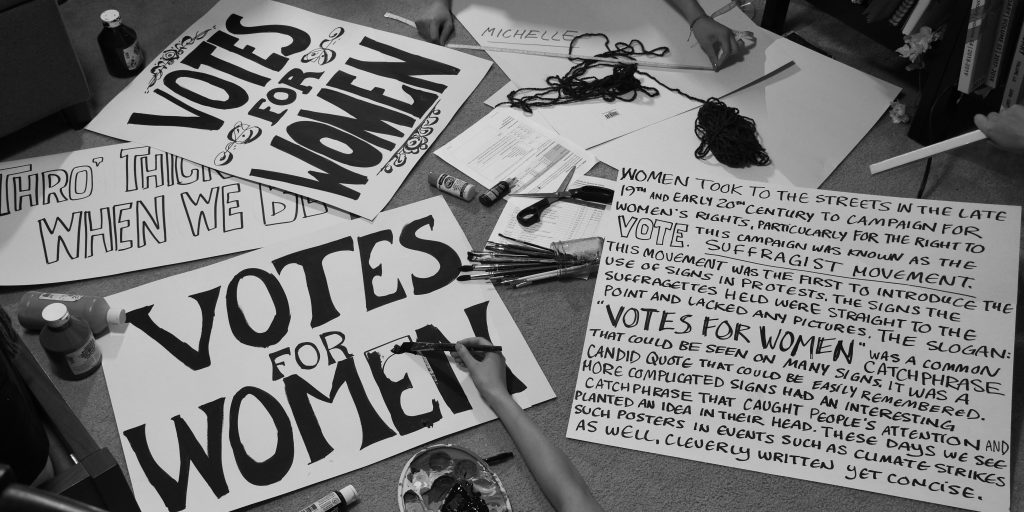 VOTES
FOR
WOMEN
MICHELLE
THRO' THICK
WHEN WE BE
VOTES
FOR
WOMEN
WOMEN TOOK TO THE STREETS IN THE LATE
19TH AND EARLY 20TH CENTURY TO CAMPAIGN FOR
WOMEN'S RIGHTS, PARTICULARLY FOR THE RIGHT TO
VOTE. THIS CAMPAIGN WAS KNOWN AS THE
SUFFRAGIST MOVEMENT.
THIS MOVEMENT WAS THE FIRST TO INTRODUCE THE
USE OF SIGNS IN PROTESTS. THE SIGNS THE
SUFFRAGETTES HELD WERE STRAIGHT TO THE
POINT AND LACKED ANY PICTURES. THE SLOGAN:
"VOTES FOR WOMEN" WAS A COMMON CATCHPHRASE
THAT COULD BE SEEN ON MANY SIGNS. IT WAS A
CANDID QUOTE THAT COULD BE EASILY REMEMBERED.
MORE COMPLICATED SIGNS HAD AN INTERESTING
CATCHPHRASE THAT CAUGHT PEOPLE'S ATTENTION AND
PLANTED AN IDEA IN THEIR HEAD. THESE DAYS WE SEE
SUCH POSTERS IN EVENTS SUCH AS CLIMATE STRIKES
AS WELL, CLEVERLY WRITTEN YET CONCISE.